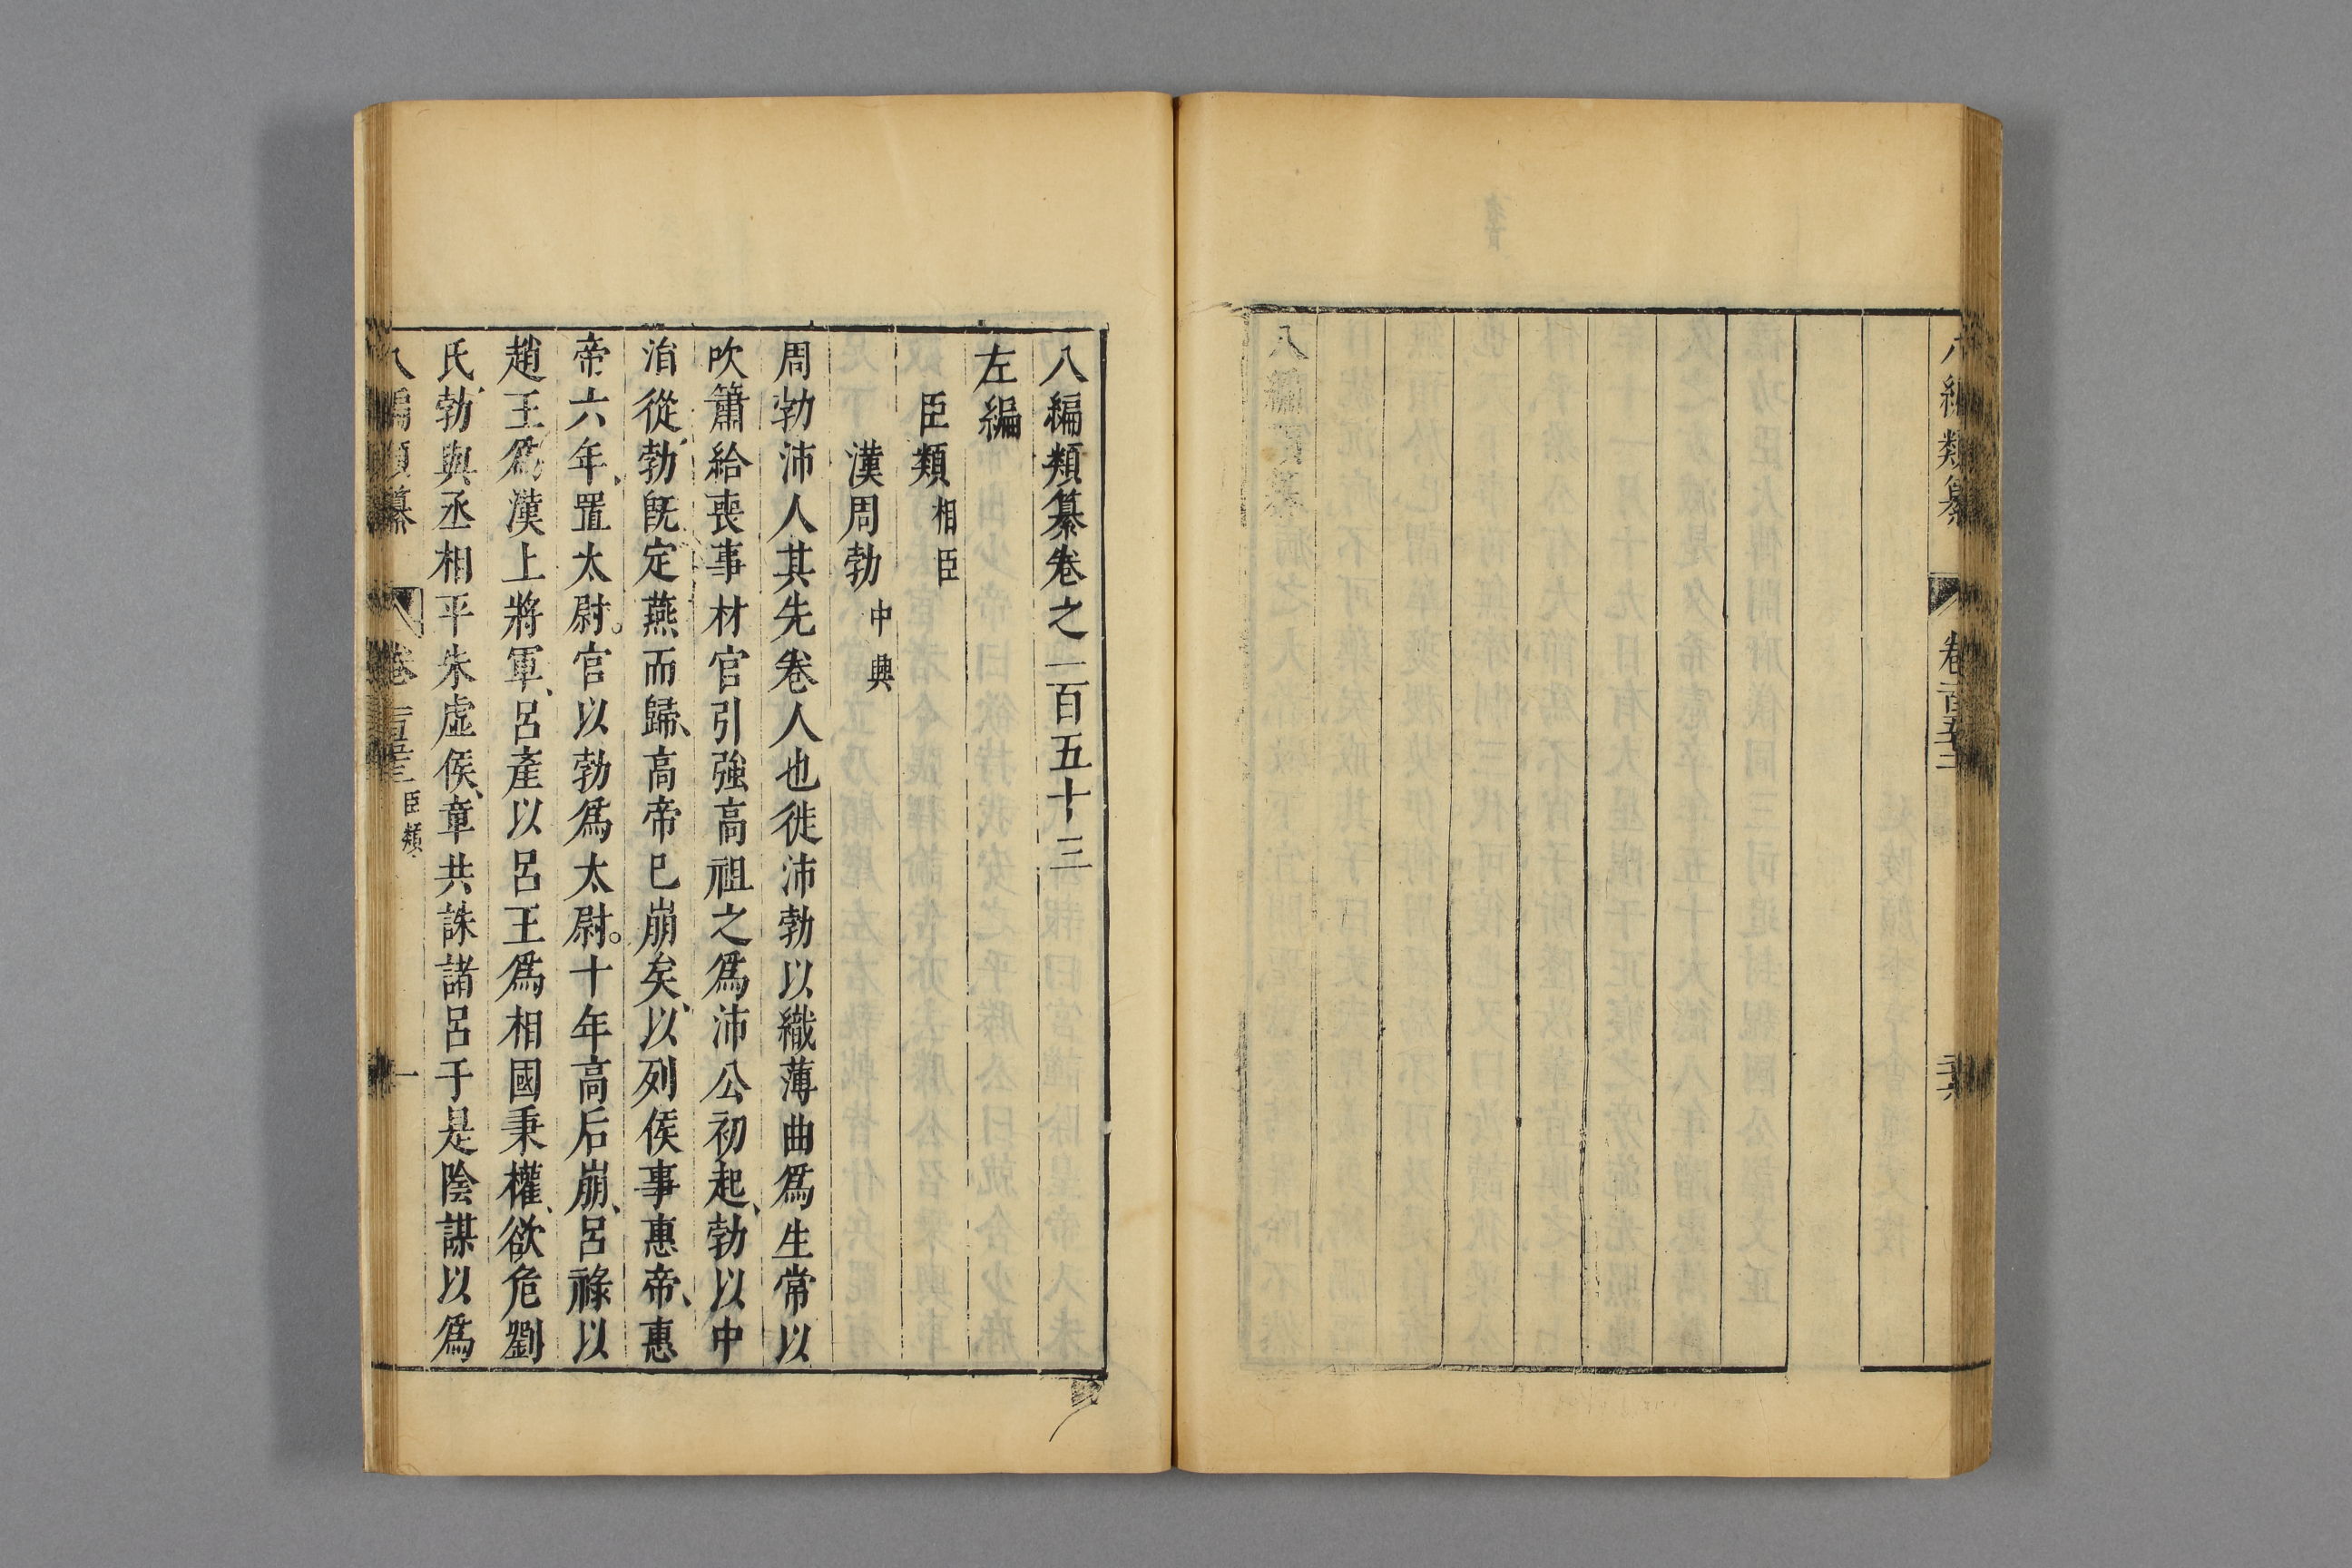 八編類纂卷之一百五十三
左編
臣類 相臣
漢周勃 中興
周勃沛人其先卷人也徙沛勃以織薄曲爲生常以
吹簫給喪事材官引強高祖之爲沛公初起、勃以中
涓從、勃旣定燕而歸、高帝已崩矣、以列侯事惠帝、惠
帝六年、置太尉。官以勃爲太尉。十年高后崩、呂祿以
趙王爲漢上將軍、呂產以呂王爲相國秉權、欲危劉
氏、勃與丞相平朱虛侯、章共誅諸呂于是陰謀以爲